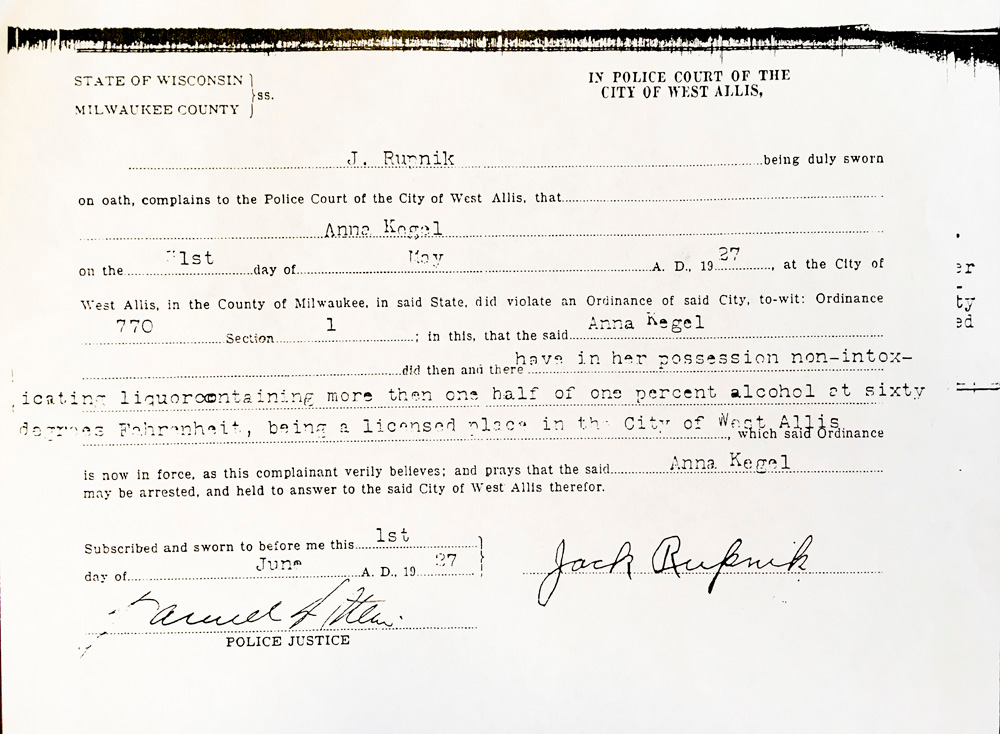 STATE OF WISCONSIN
ss.
MILWAUKEE COUNTY
IN POLICE COURT OF THE
CITY OF WEST ALLIS,
J. Rupnik being duly sworn
on oath, complains to the Police Court of the City of West Allis, that
Anna Kegel
on the 31st day of May A. D., 19 27, at the City of
West Allis, in the County of Milwaukee, in said State, did violate an Ordinance of said City, to-wit: Ordinance
770 Section 1; in this, that the said Anna Kegel
did then and there have in her possession non-intox-
icating liquor containing more then one half of one percent alcohol at sixty
degrees Fahrenheit, being a licensed place in the City of West Allis, which said Ordinance
is now in force, as this complainant verily believes; and prays that the said Anna Kegel
may be arrested, and held to answer to the said City of West Allis therefor.
Subscribed and sworn to before me this 1st
day of June A. D., 19 27
Jack Rupnik
POLICE JUSTICE
er
ty
ed